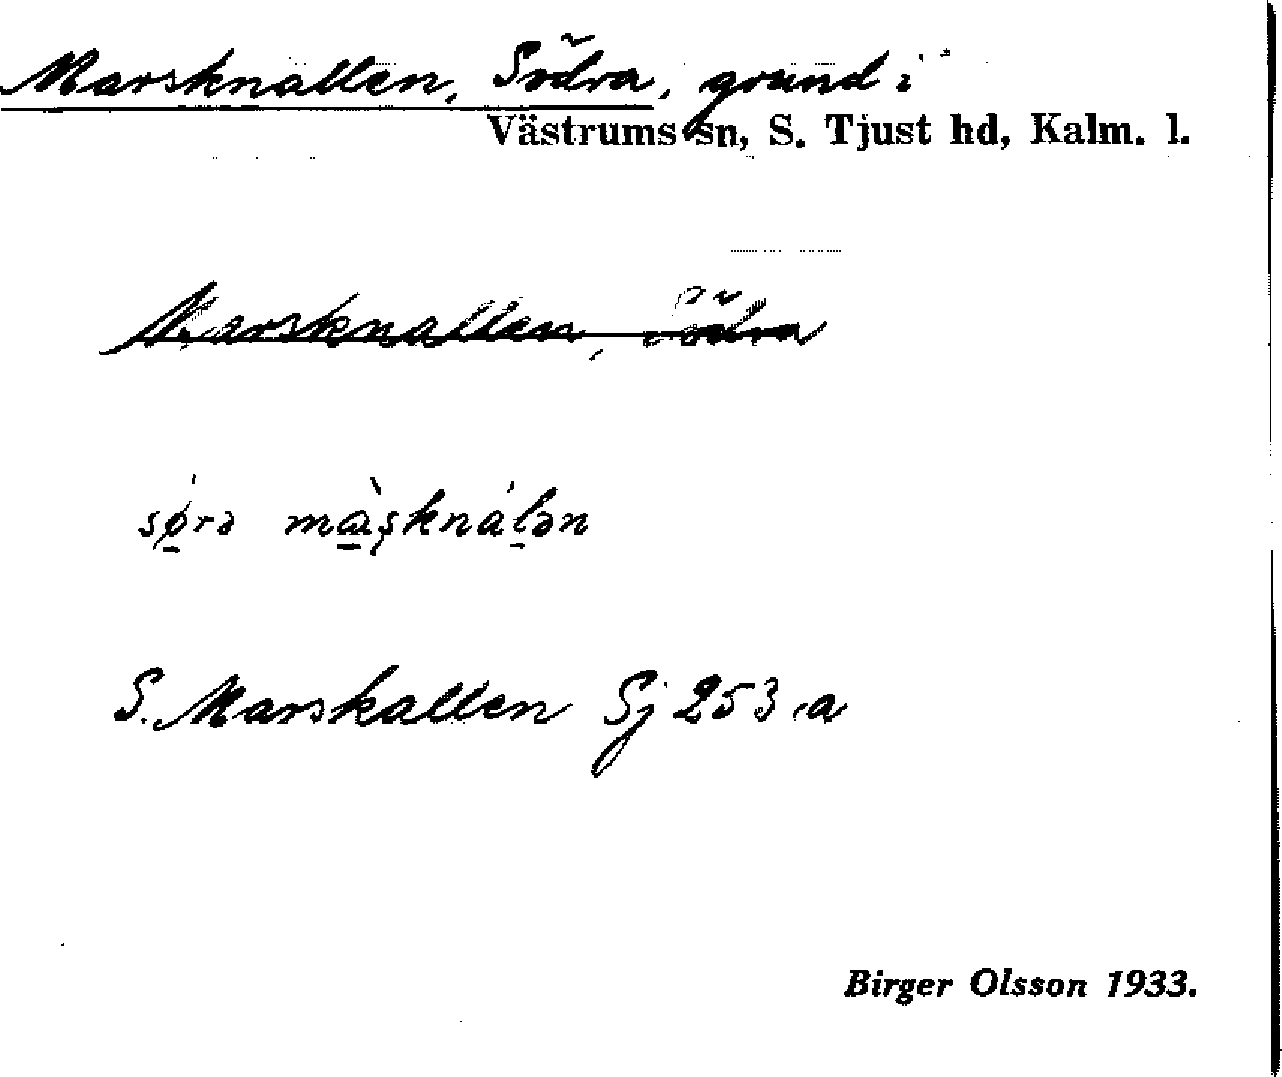 Marsknallen, Södra, grund i
Västrums sn, S. Tjust hd, Kalm. l.
Marsknallen, Södra
sǿ̱rə mà̱ʂknáḻən
S. Marskallen Sj 253 a
Birger Olsson 1933.